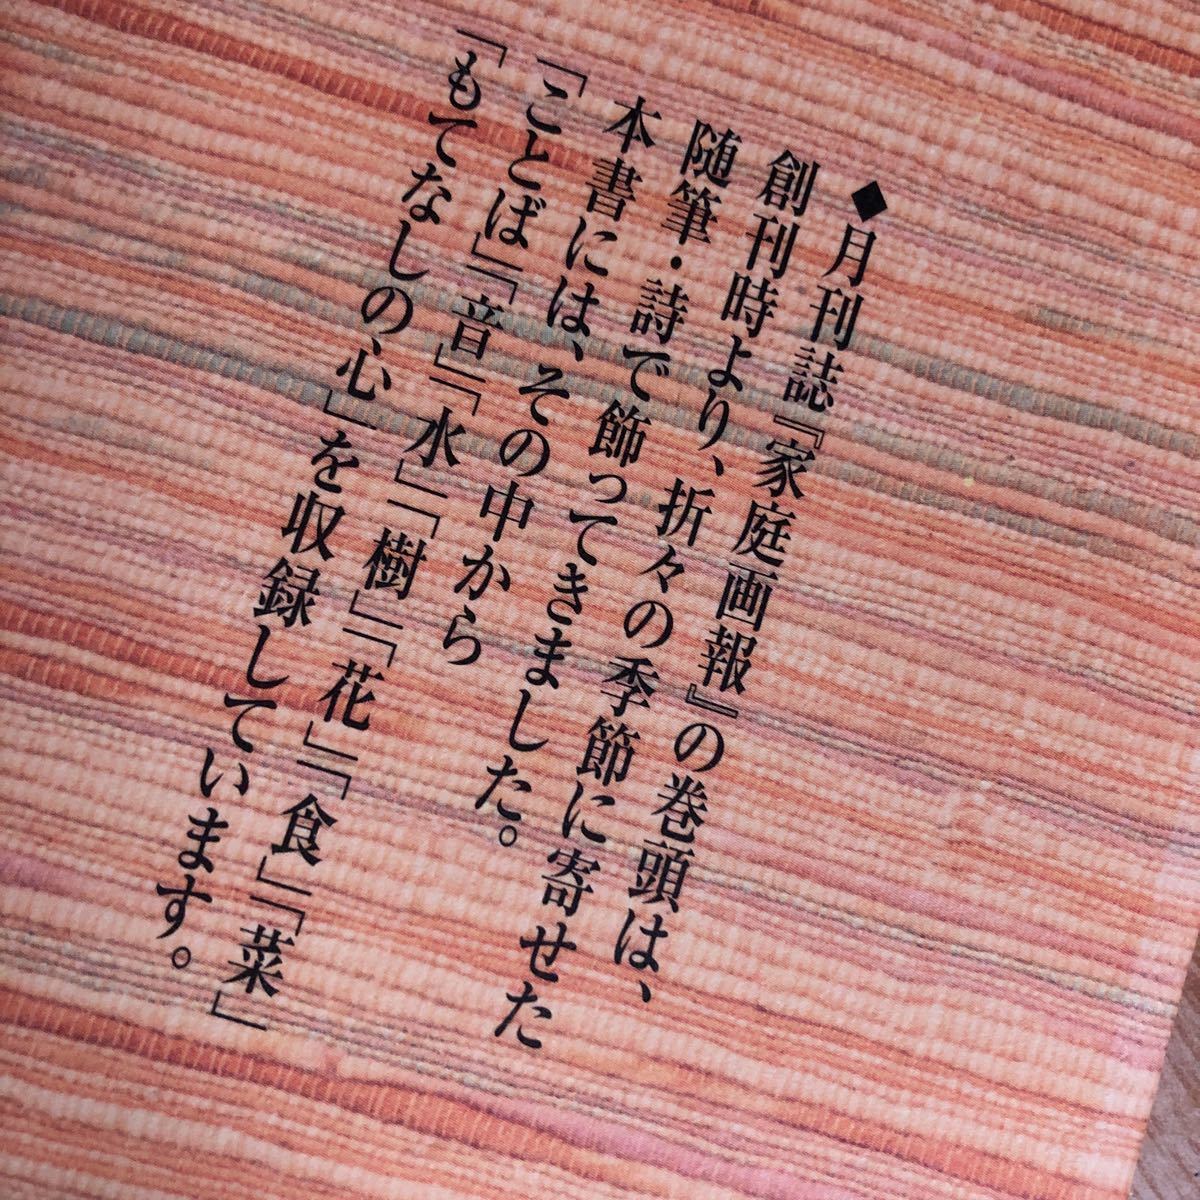 ◆月刊誌『家庭画報』の巻頭は、
創刊時より、折々の季節に寄せた
随筆・詩で飾ってきました。
本書には、その中から
「ことば」「音」「水」「樹」「花」「食」「菜」
「もてなしの心」を収録しています。